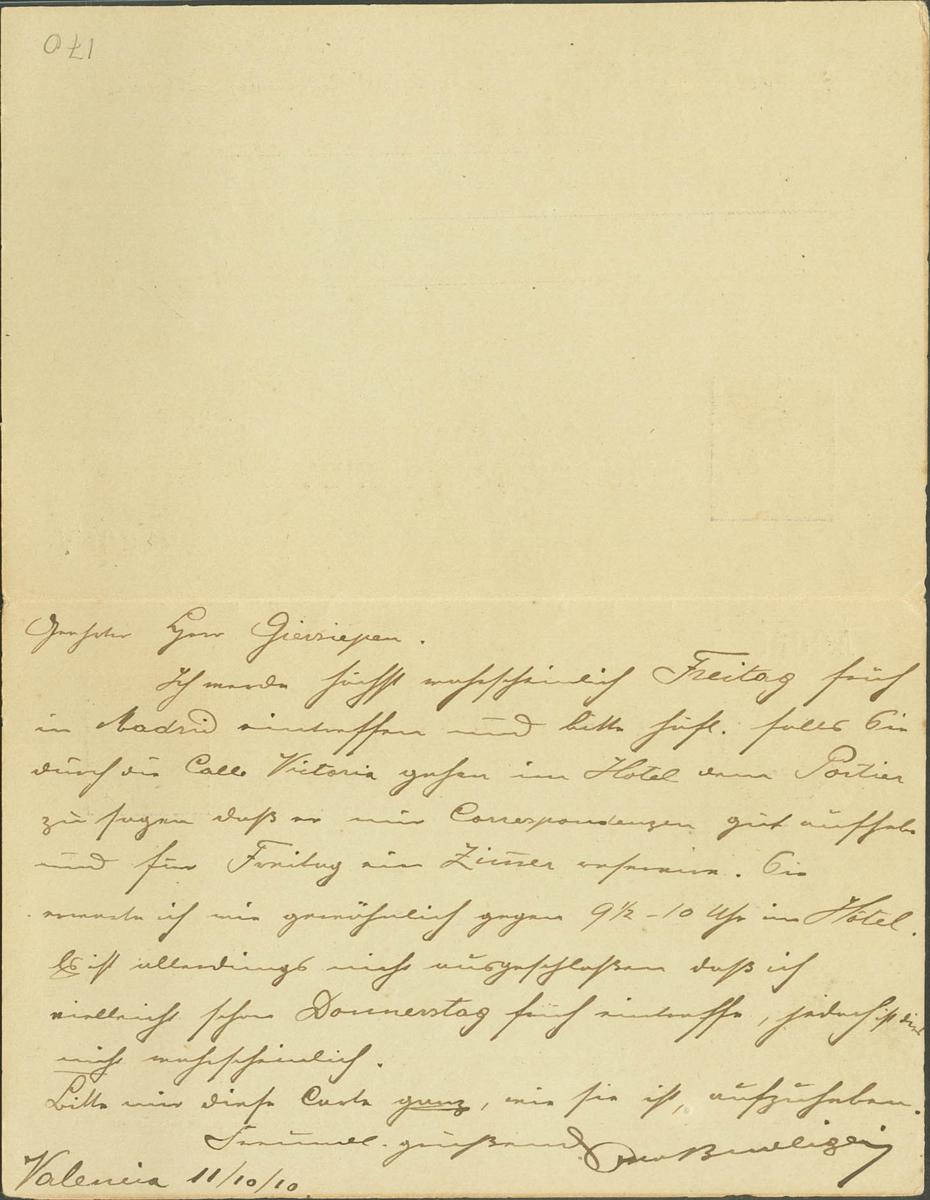 170
Geehrter Herr Giersiepen.
Ich werde höchst wahrscheinlich Freitag früh
in Madrid eintreffen und bitte höfl. falls Sie
durch die Calle Victoria gehen im Hotel dem Portier
zu sagen daß er mir Correspondenzen gut aufhebe
und für Freitag ein Zimer reservire. Sie
erwarte ich wie gewöhnlich gegen 9½ - 10 Uhr im Hôtel.
Es ist allerdings nicht ausgeschloßen daß ich
vielleicht schon Donnerstag früh eintreffe, jedoch ist dies
nicht wahrscheinlich.
Bitte mir diese Carte ganz, wie sie ist, aufzuheben.
Freundl. grüßend
Valencia 11/10/10.